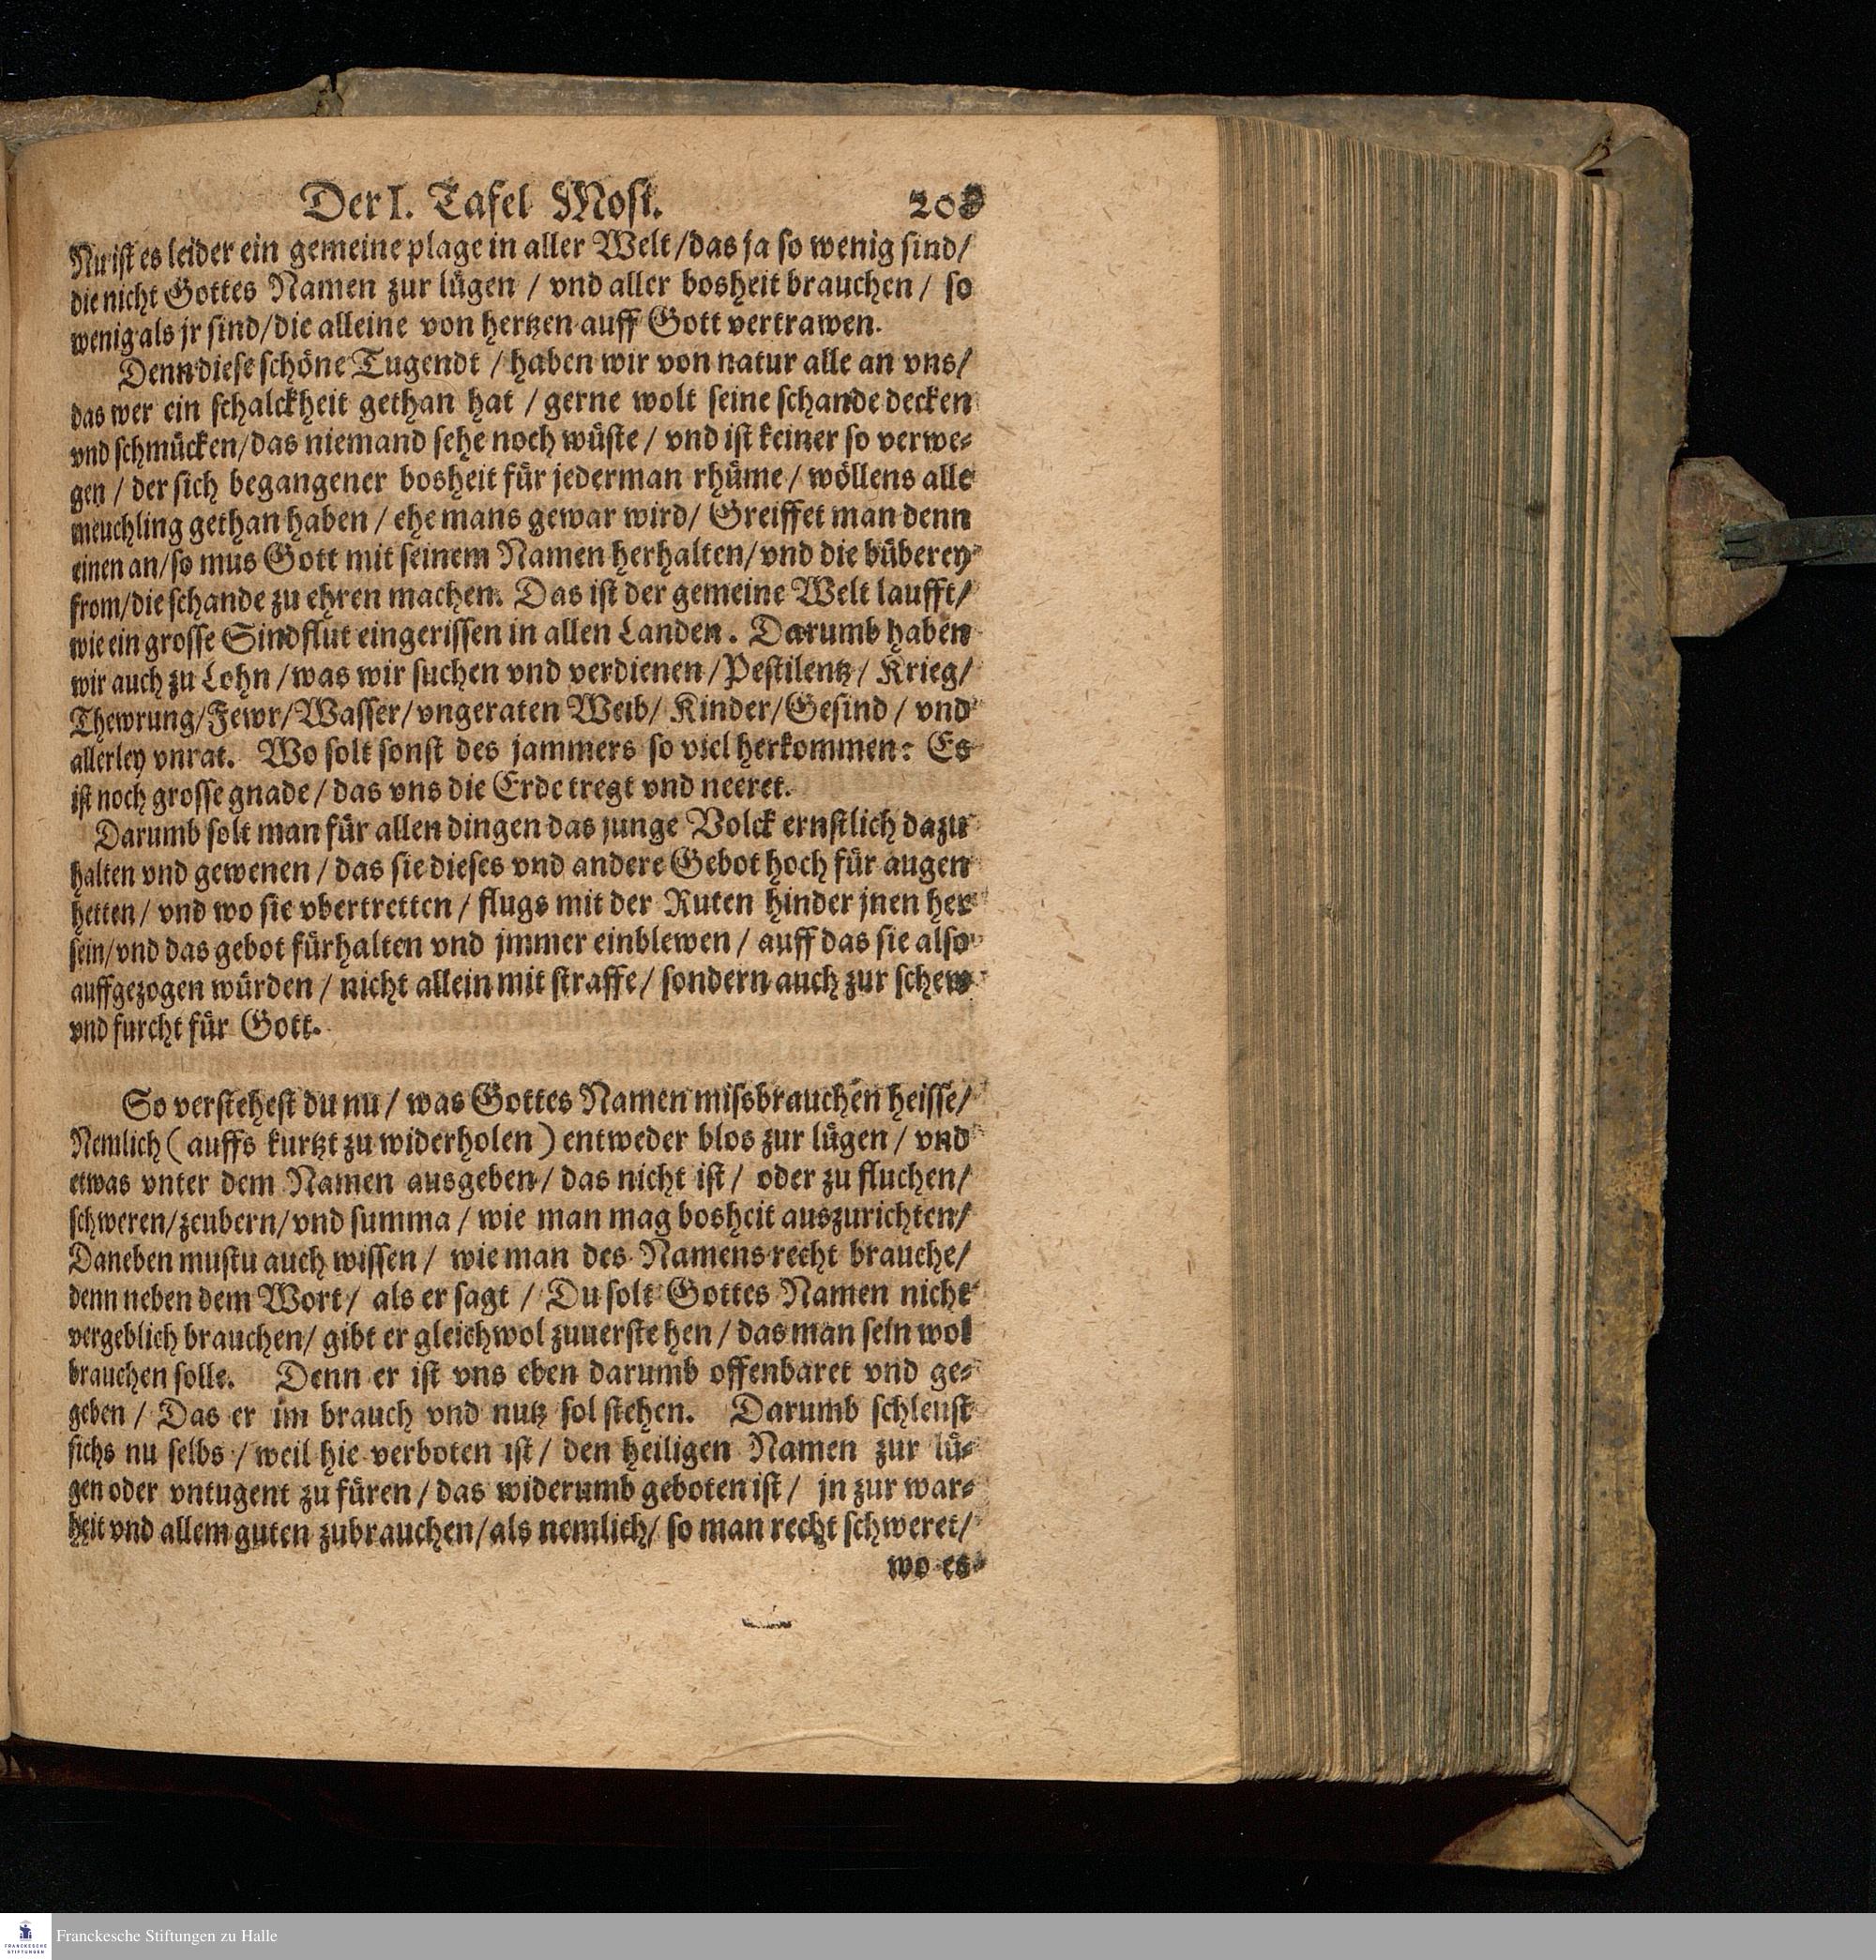 Der I. Tafel Mosi. 203
Nu ist es leider ein gemeine plage in aller Welt / das ja so wenig sind /
die nicht Gottes Namen zur lügen / vnd aller bosheit brauchen / so
wenig als jr sind / die alleine von hertzen auff Gott vertrawen.
Denn diese schöne Tugendt / haben wir von natur alle an vns /
das wer ein schalckheit gethan hat / gerne wolt seine schande decken
vnd schmücken / das niemand sehe noch wüste / vnd ist keiner so verwe-
gen / der sich begangener bosheit für jederman rhüme / wöllens alle
meuchling gethan haben / ehe mans gewar wird / Greiffet man denn
einen an / so mus Gott mit seinem Namen herhalten / vnd die büberey
from / die schande zu ehren machen. Das ist der gemeine Welt laufft /
wie ein grosse Sindflut eingerissen in allen Landen. Darumb haben
wir auch zu Lohn / was wir suchen vnd verdienen / Pestilentz / Krieg /
Thewrung / Fewr / Wasser / vngeraten Weib / Kinder / Gesind / vnd
allerley vnrat. Wo solt sonst des jammers so viel herkommen: Es
ist noch grosse gnade / das vns die Erde tregt vnd neeret.
Darumb solt man für allen dingen das junge Volck ernstlich dazu
halten vnd gewenen / das sie dieses vnd andere Gebot hoch für augen
hetten / vnd wo sie vbertretten / flugs mit der Ruten hinder jnen her
sein / vnd das gebot fürhalten vnd jmmer einblewen / auff das sie also
auffgezogen würden / nicht allein mit straffe / sondern auch zur schew
vnd furcht für Gott.
So verstehest du nu / was Gottes Namen missbrauchen heisse /
Nemlich ( auffs kurtzt zu widerholen ) entweder blos zur lügen / vnd
etwas vnter dem Namen ausgeben / das nicht ist / oder zu fluchen /
schweren / zeubern / vnd summa / wie man mag bosheit auszurichten /
Daneben mustu auch wissen / wie man des Namens recht brauche /
denn neben dem Wort / als er sagt / Du solt Gottes Namen nicht
vergeblich brauchen / gibt er gleichwol zuuerstehen / das man sein wol
brauchen solle. Denn er ist vns eben darumb offenbaret vnd ge-
geben / Das er im brauch vnd nutz sol stehen. Darumb schleust
sichs nu selbs / weil hie verboten ist / den heiligen Namen zur lü-
gen oder vntugent zu füren / das widerumb geboten ist / jn zur war-
heit vnd allem guten zubrauchen / als nemlich / so man recht schweret /
wo es
FRANCKESCHE STIFTUNGEN
Franckesche Stiftungen zu Halle